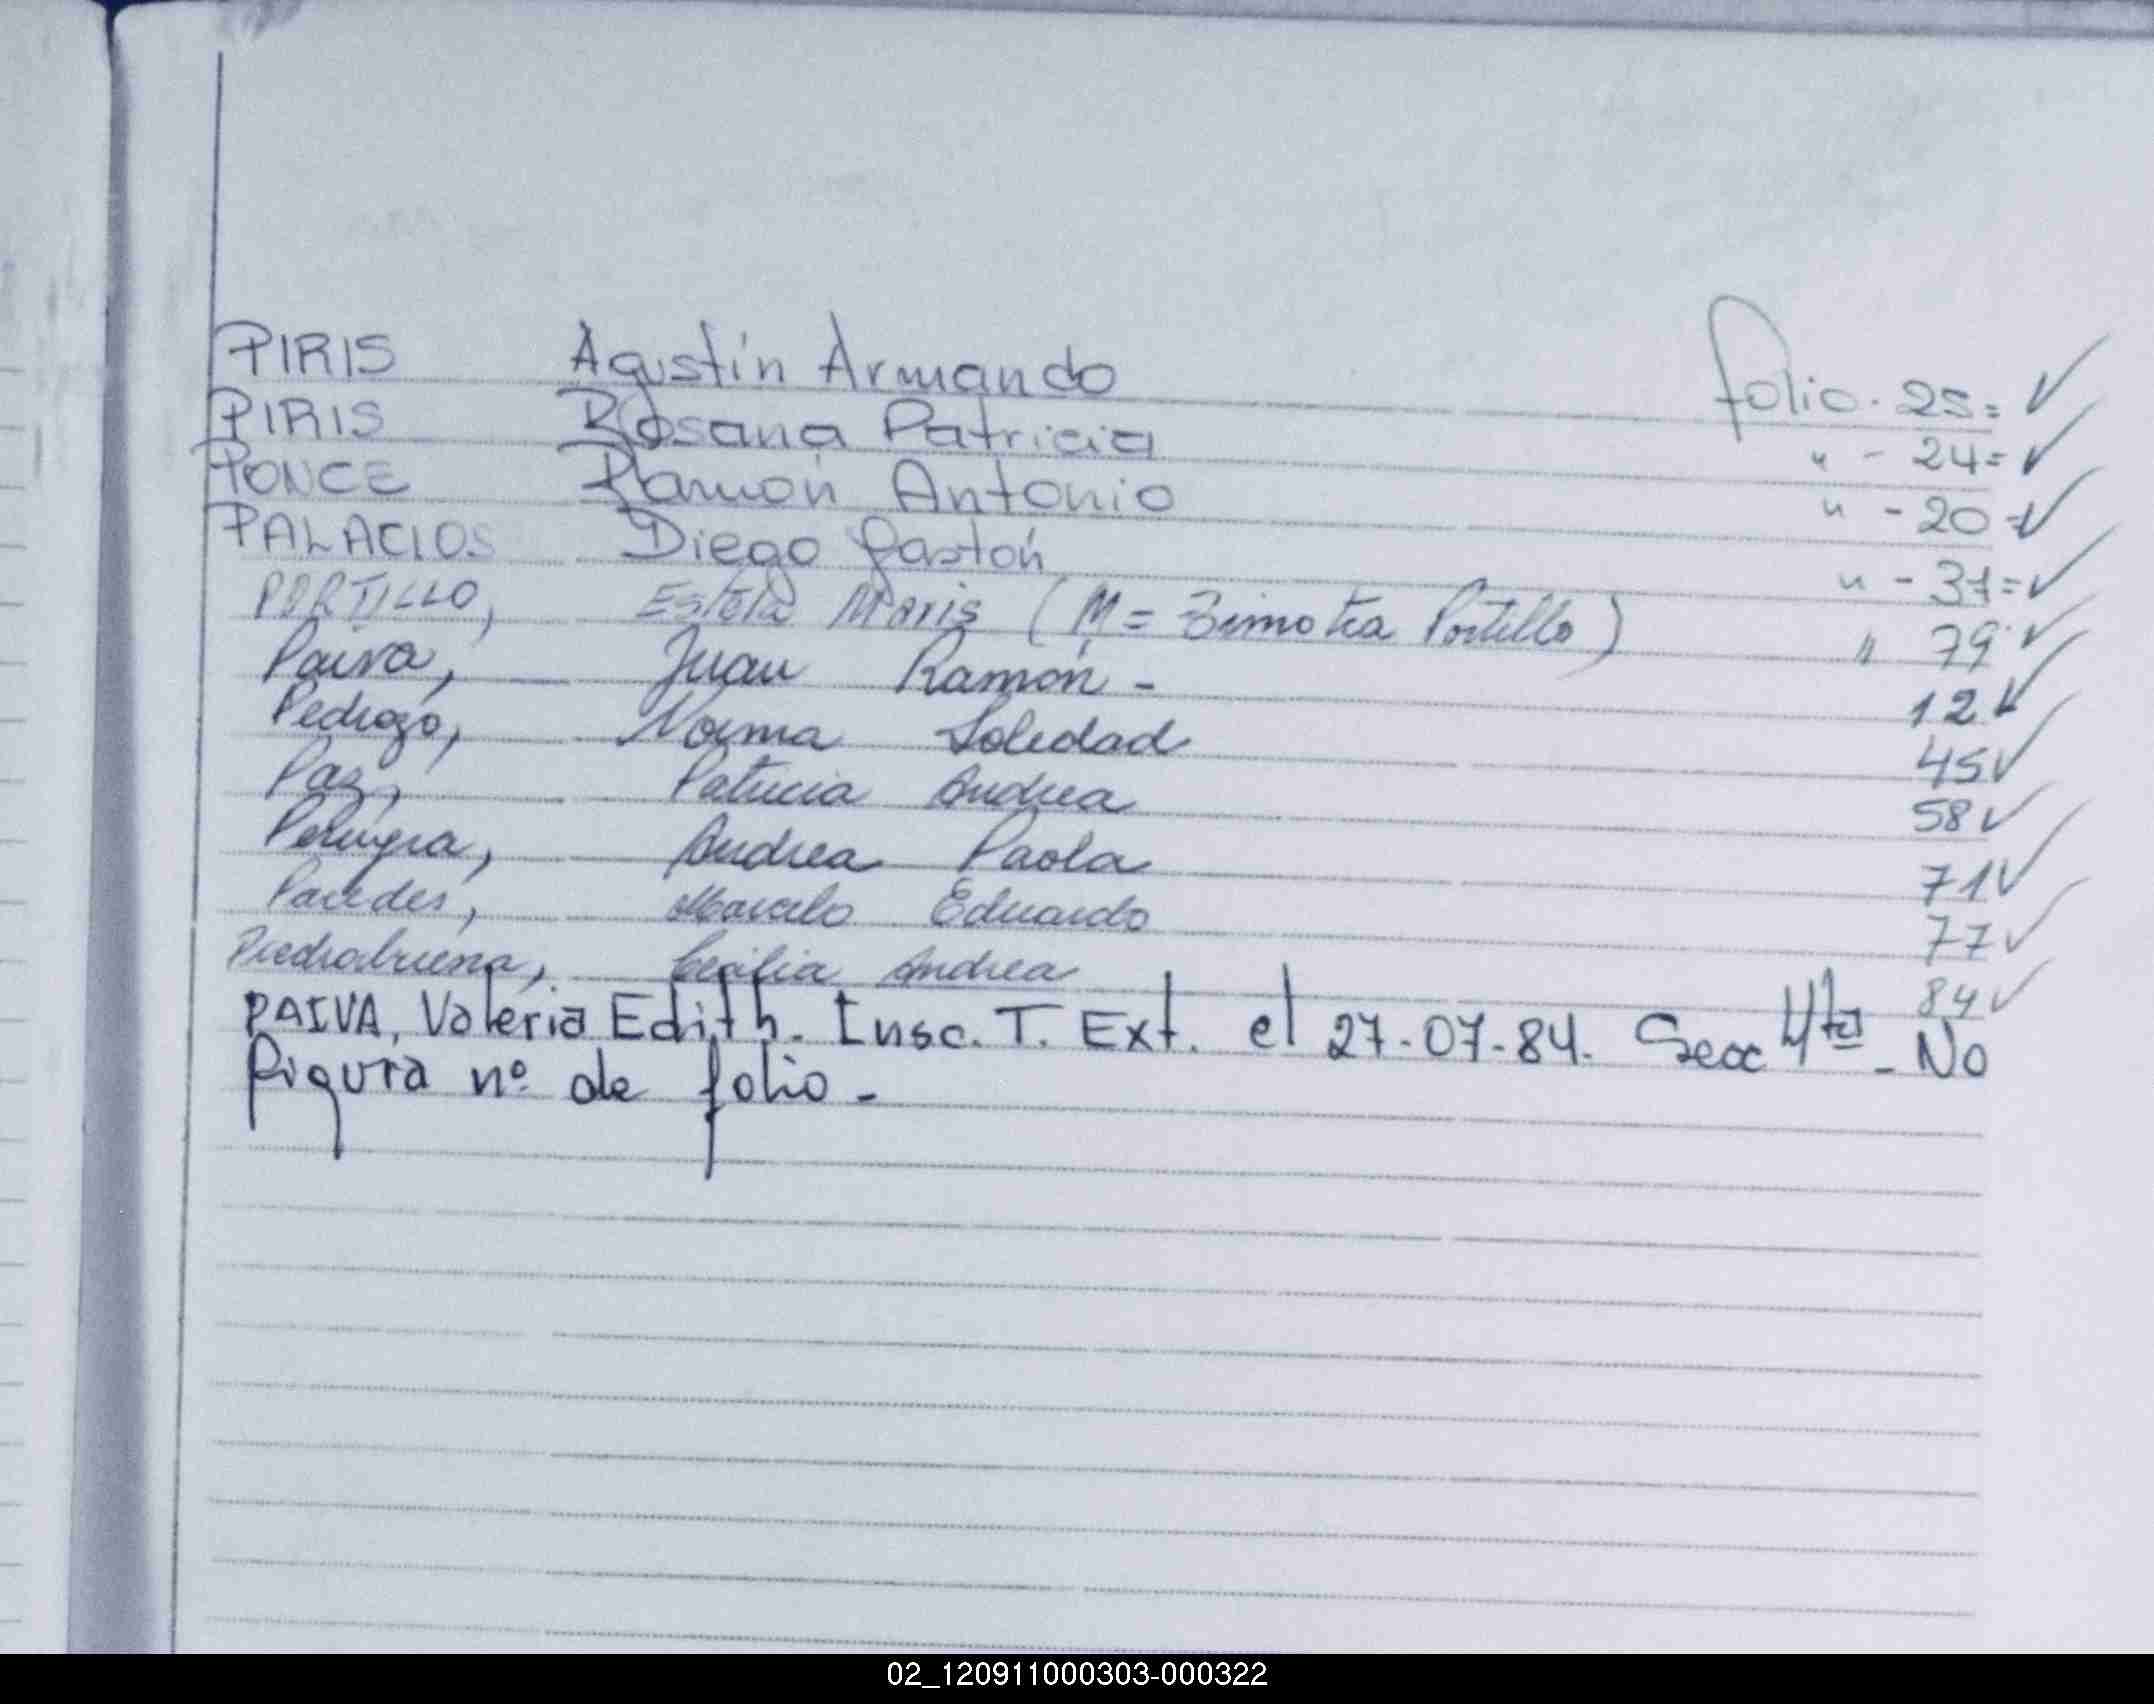 PIRIS Agustín Armando folio. 25= ✓
PIRIS Rosana Patricia " - 24= ✓
PONCE Ramón Antonio " - 20= ✓
PALACIOS Diego Gastón " - 37= ✓
PORTILLO, Estela Maris (M= Portillo) " 79 ✓
Paiva, Juan Ramón - 12 ✓
Pedrozo, Norma Soledad 45 ✓
Paz, Patricia Andrea 58 ✓
Andrea Paola 71 ✓
Paredes, Marcelo Eduardo 77 ✓
Piedrabuena, Cecilia Andrea 84 ✓
PAIVA, Valeria Edith. Insc. T. Ext. el 27-07-84. Secc 4ta - No
figura nº de folio -
02_120911000303-000322